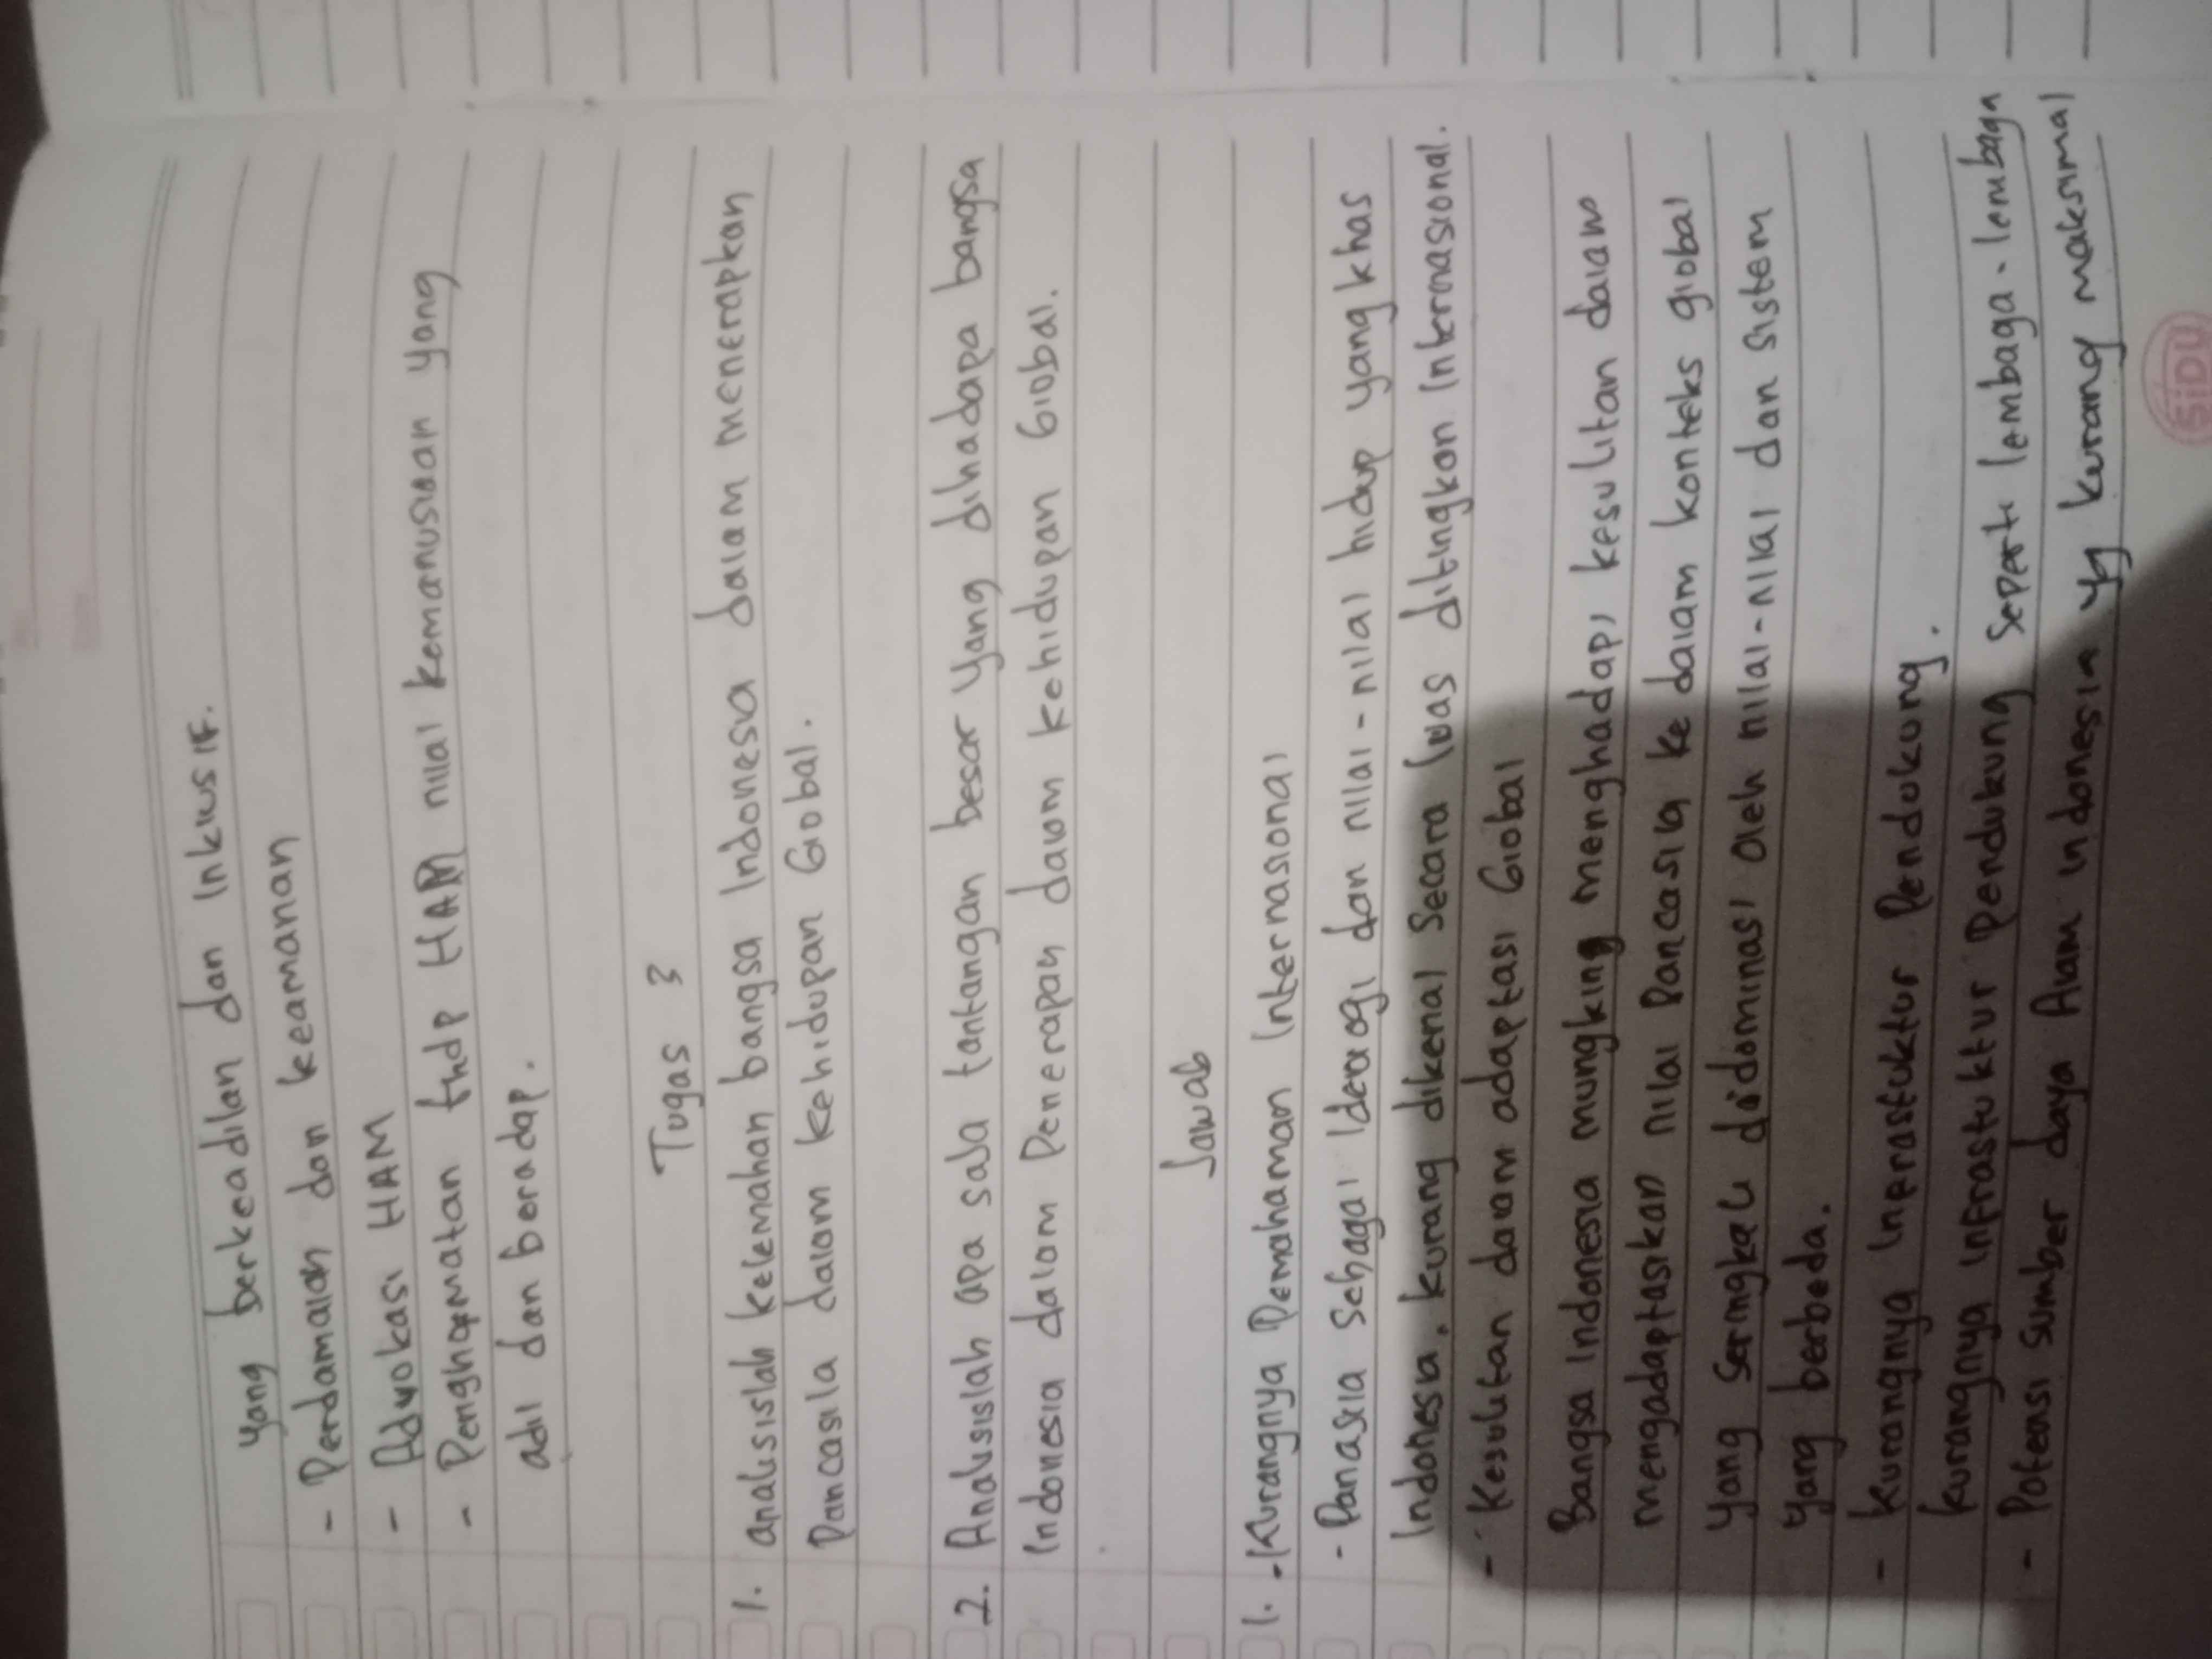 yang berkeadilan dan inklusif.
- Perdamaian dan keamanan
- Advokasi HAM
- Penghormatan thdp HAM nilai kemanusiaan yang
adil dan beradap.
Tugas 3
1. analisislah kelemahan bangsa Indonesia dalam menerapkan
Pancasila dalam kehidupan Global.
2. Analisislah apa saja tantangan besar yang dihadapa bangsa
Indonesia dalam Penerapan dalam kehidupan Global.
Jawab
1. - Kurangnya Pemahaman Internasional
- Panasila sebagai Ideologi dan nilai-nilai hidup yang khas
Indonesia. kurang dikenal secara luas ditingkan Internasional.
- Kesulitan dalam adaptasi Global
Bangsa Indonesia mungking menghadapi kesulitan dalam
mengadaptasikan nilai Pancasila ke dalam konteks global
yang seringkali didominasi oleh nilai-nilai dan sistem
yang berbeda.
- Kurangnya infrastuktur Pendukung.
kurangnya infrastuktur Pendukung seperti lembaga-lembaga
- Potensi sumber daya Alam indonesia yg kurang maksimal
SiDU